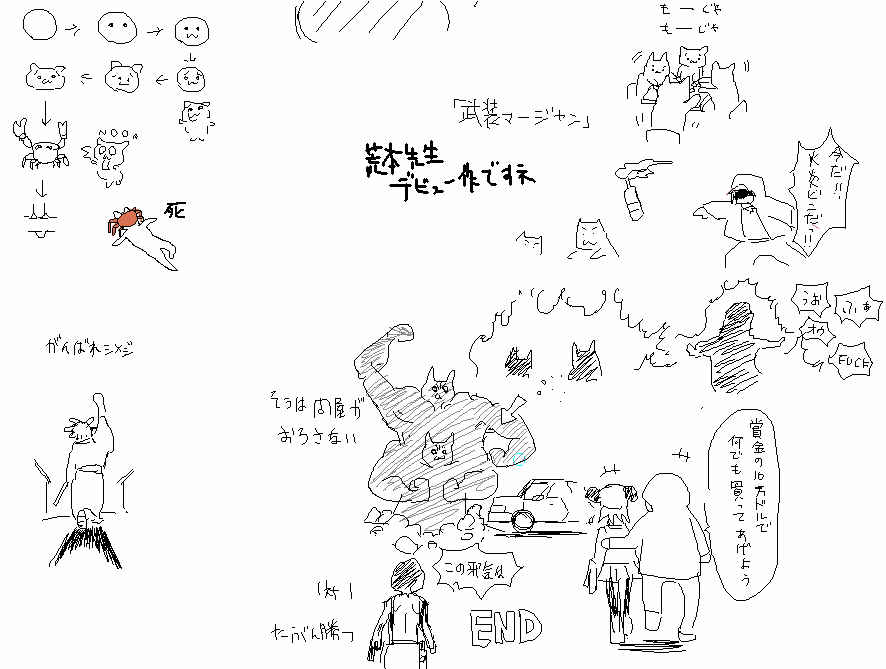 もーじゃ
もーじゃ
「武装マージャン」
荒本先生
デビュー作ですネ
NOO
死
今だ!!
火炎ビンだっ!!
うお
ふぁ
オウ
FUCK
がんばれシメジ
そうは問屋が
おろさない
賞金の10万ドルで
何でも買ってあげよう
この邪気は
END